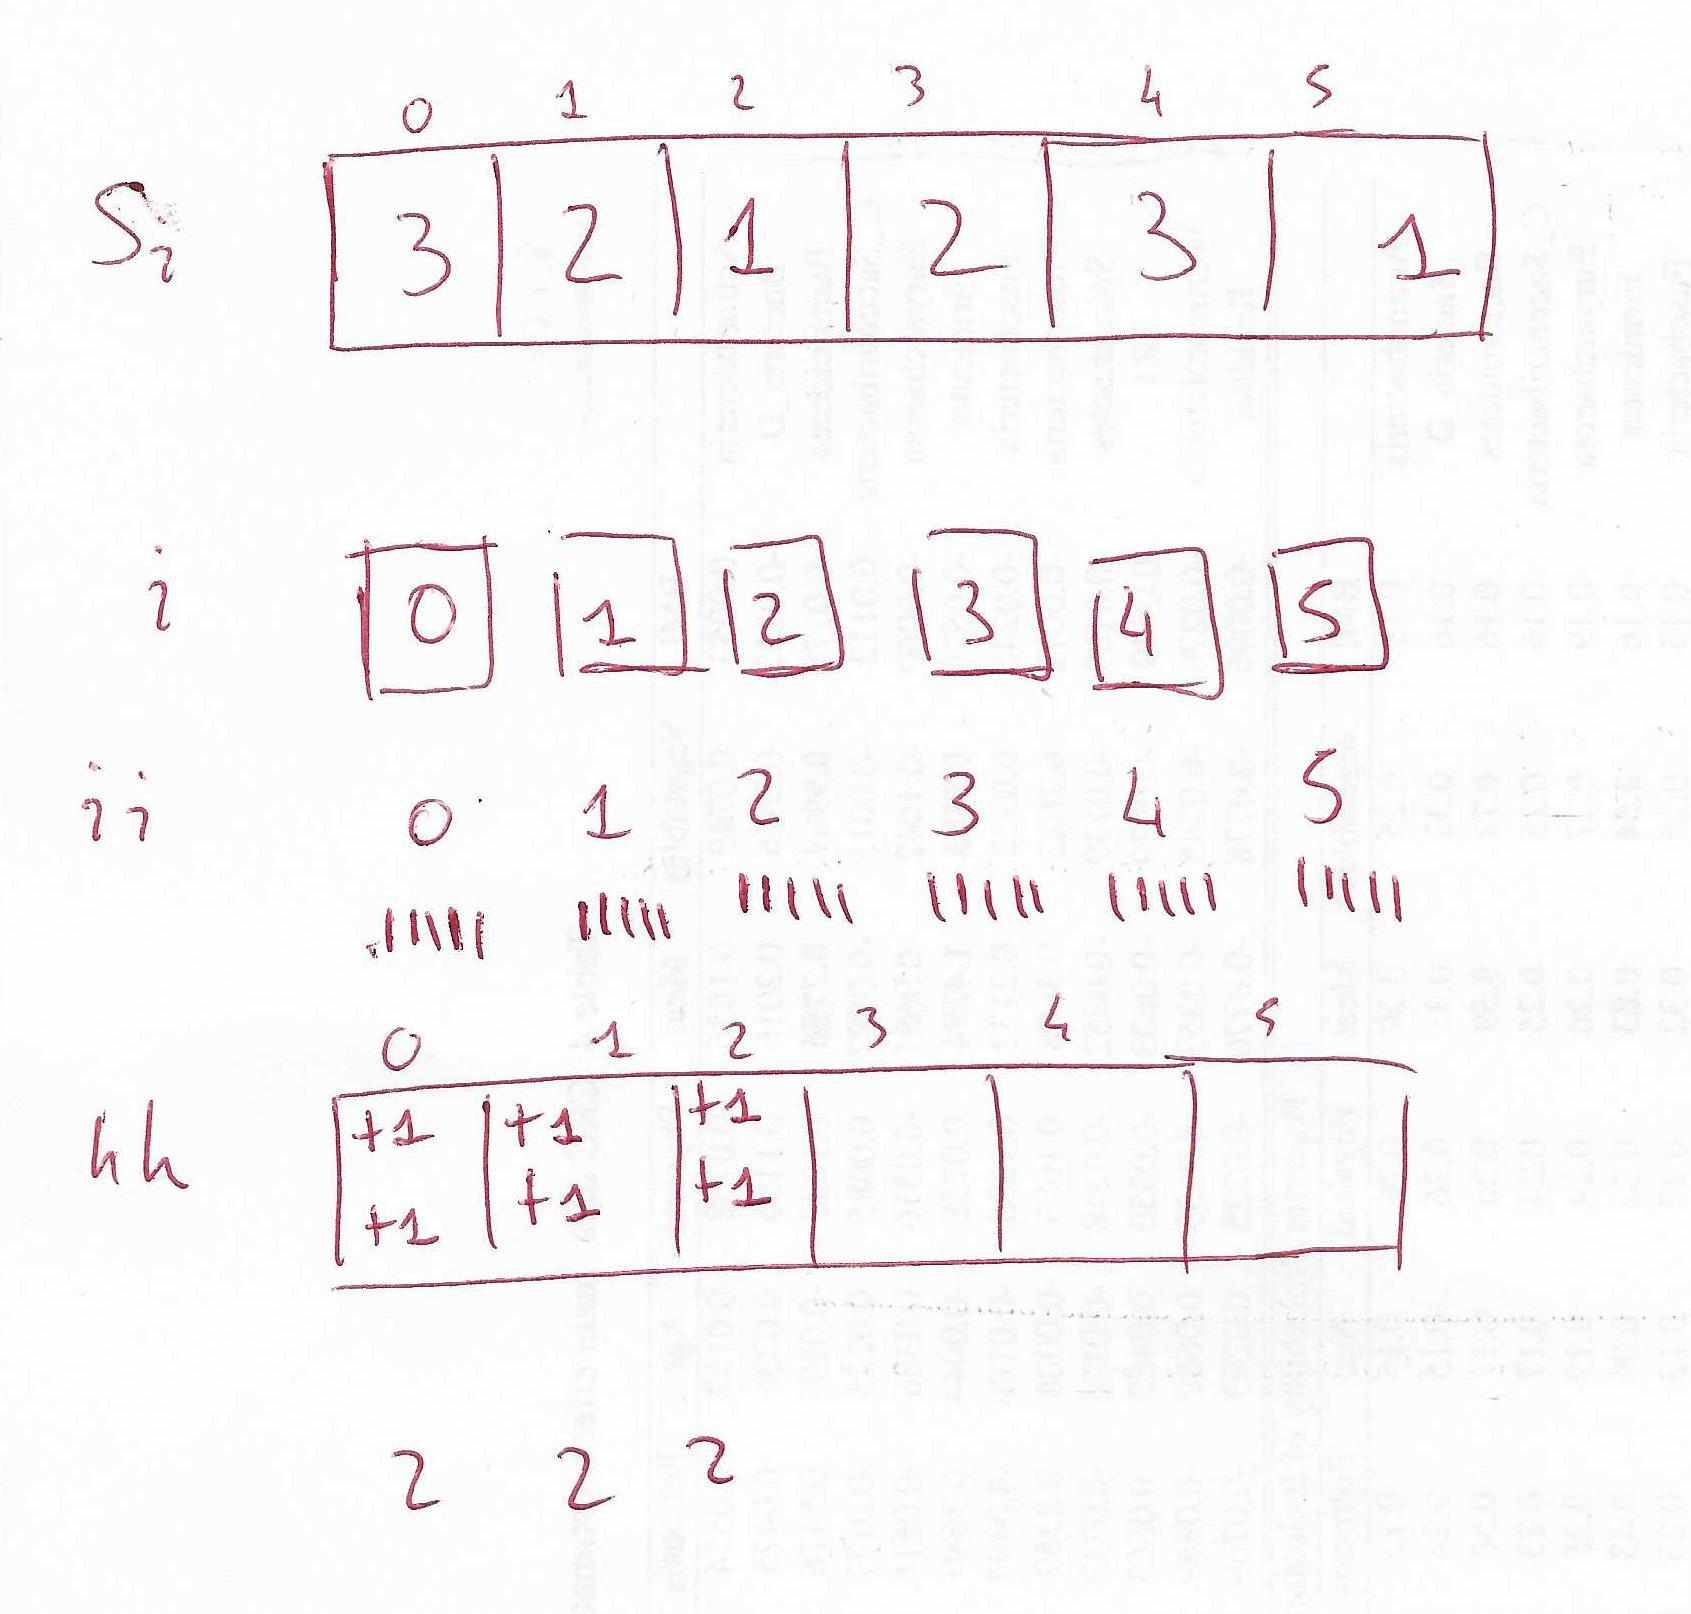 0 1 2 3 4 5
Si 3 2 1 2 3 1
i 0 1 2 3 4 5
ii 0 1 2 3 4 5
0 1 2 3 4 5
hh +1 +1 +1
+1 +1 +1
2 2 2